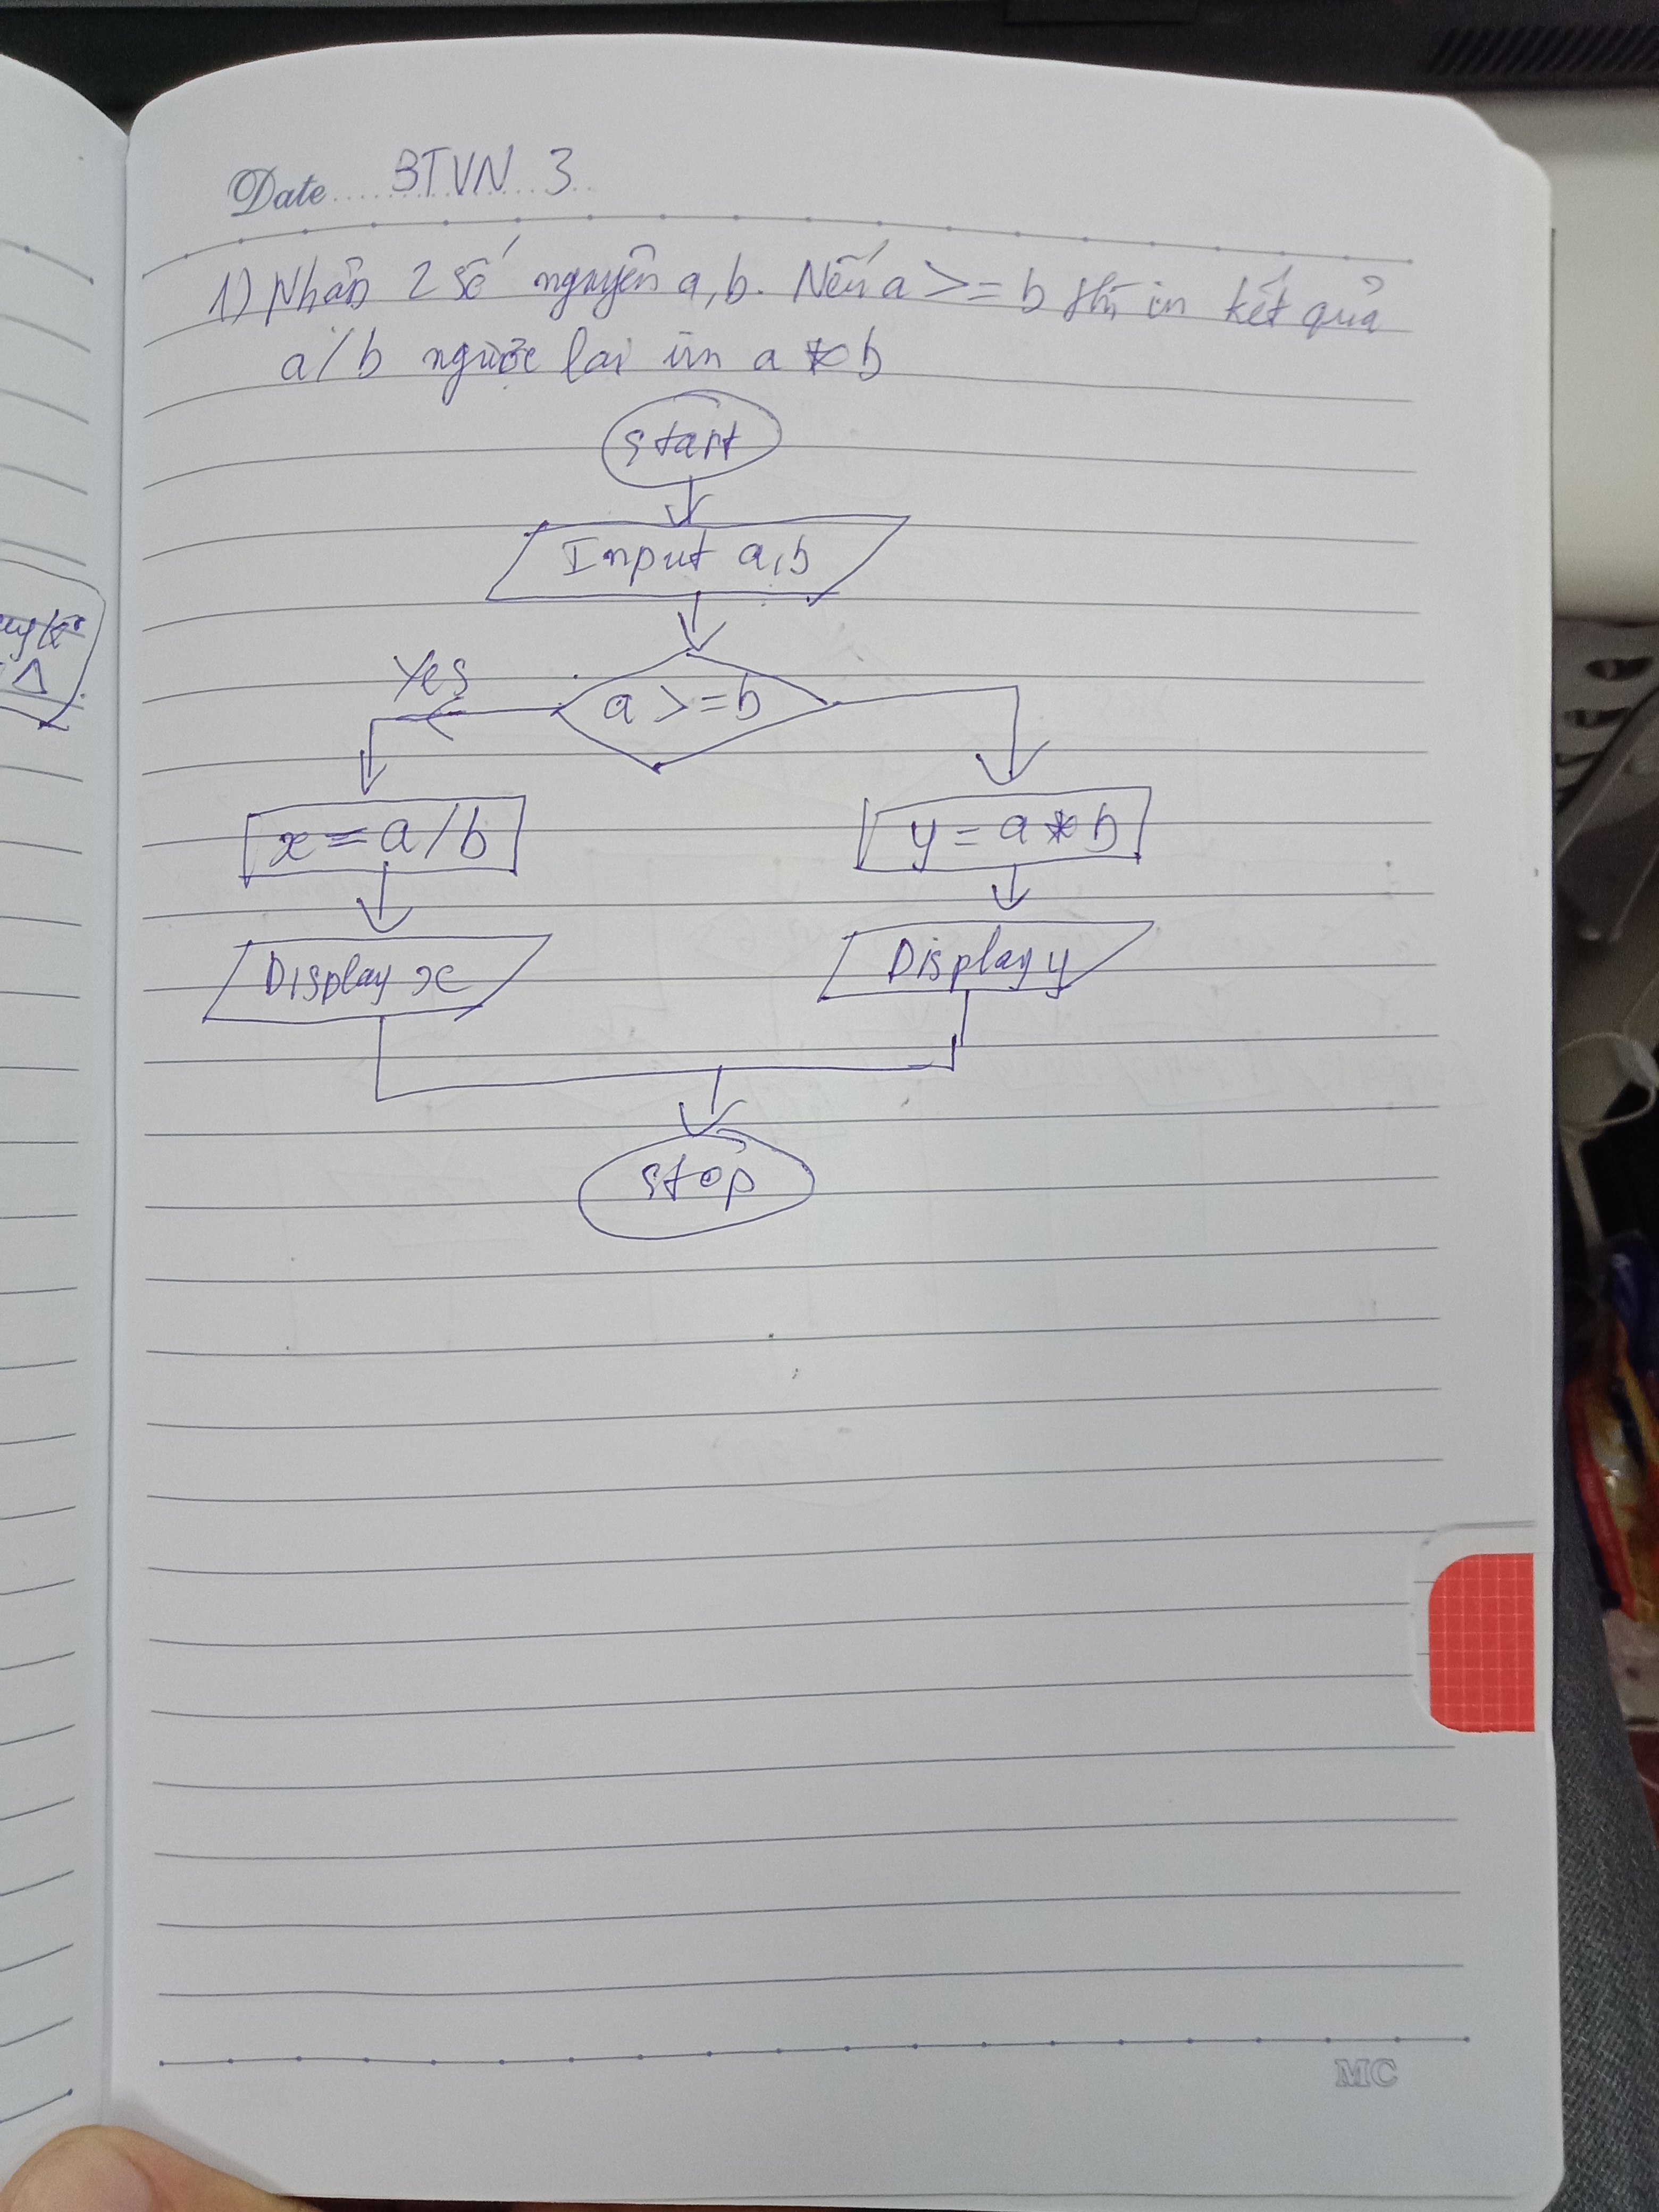 Date BTVN 3
1) Nhận 2 số nguyên a, b. Nếu a >= b thì in kết quả
a/b ngược lại in a * b
start
Input a, b
Yes
a >= b
x = a/b
y = a * b
Display x
Display y
stop
Δ
MC